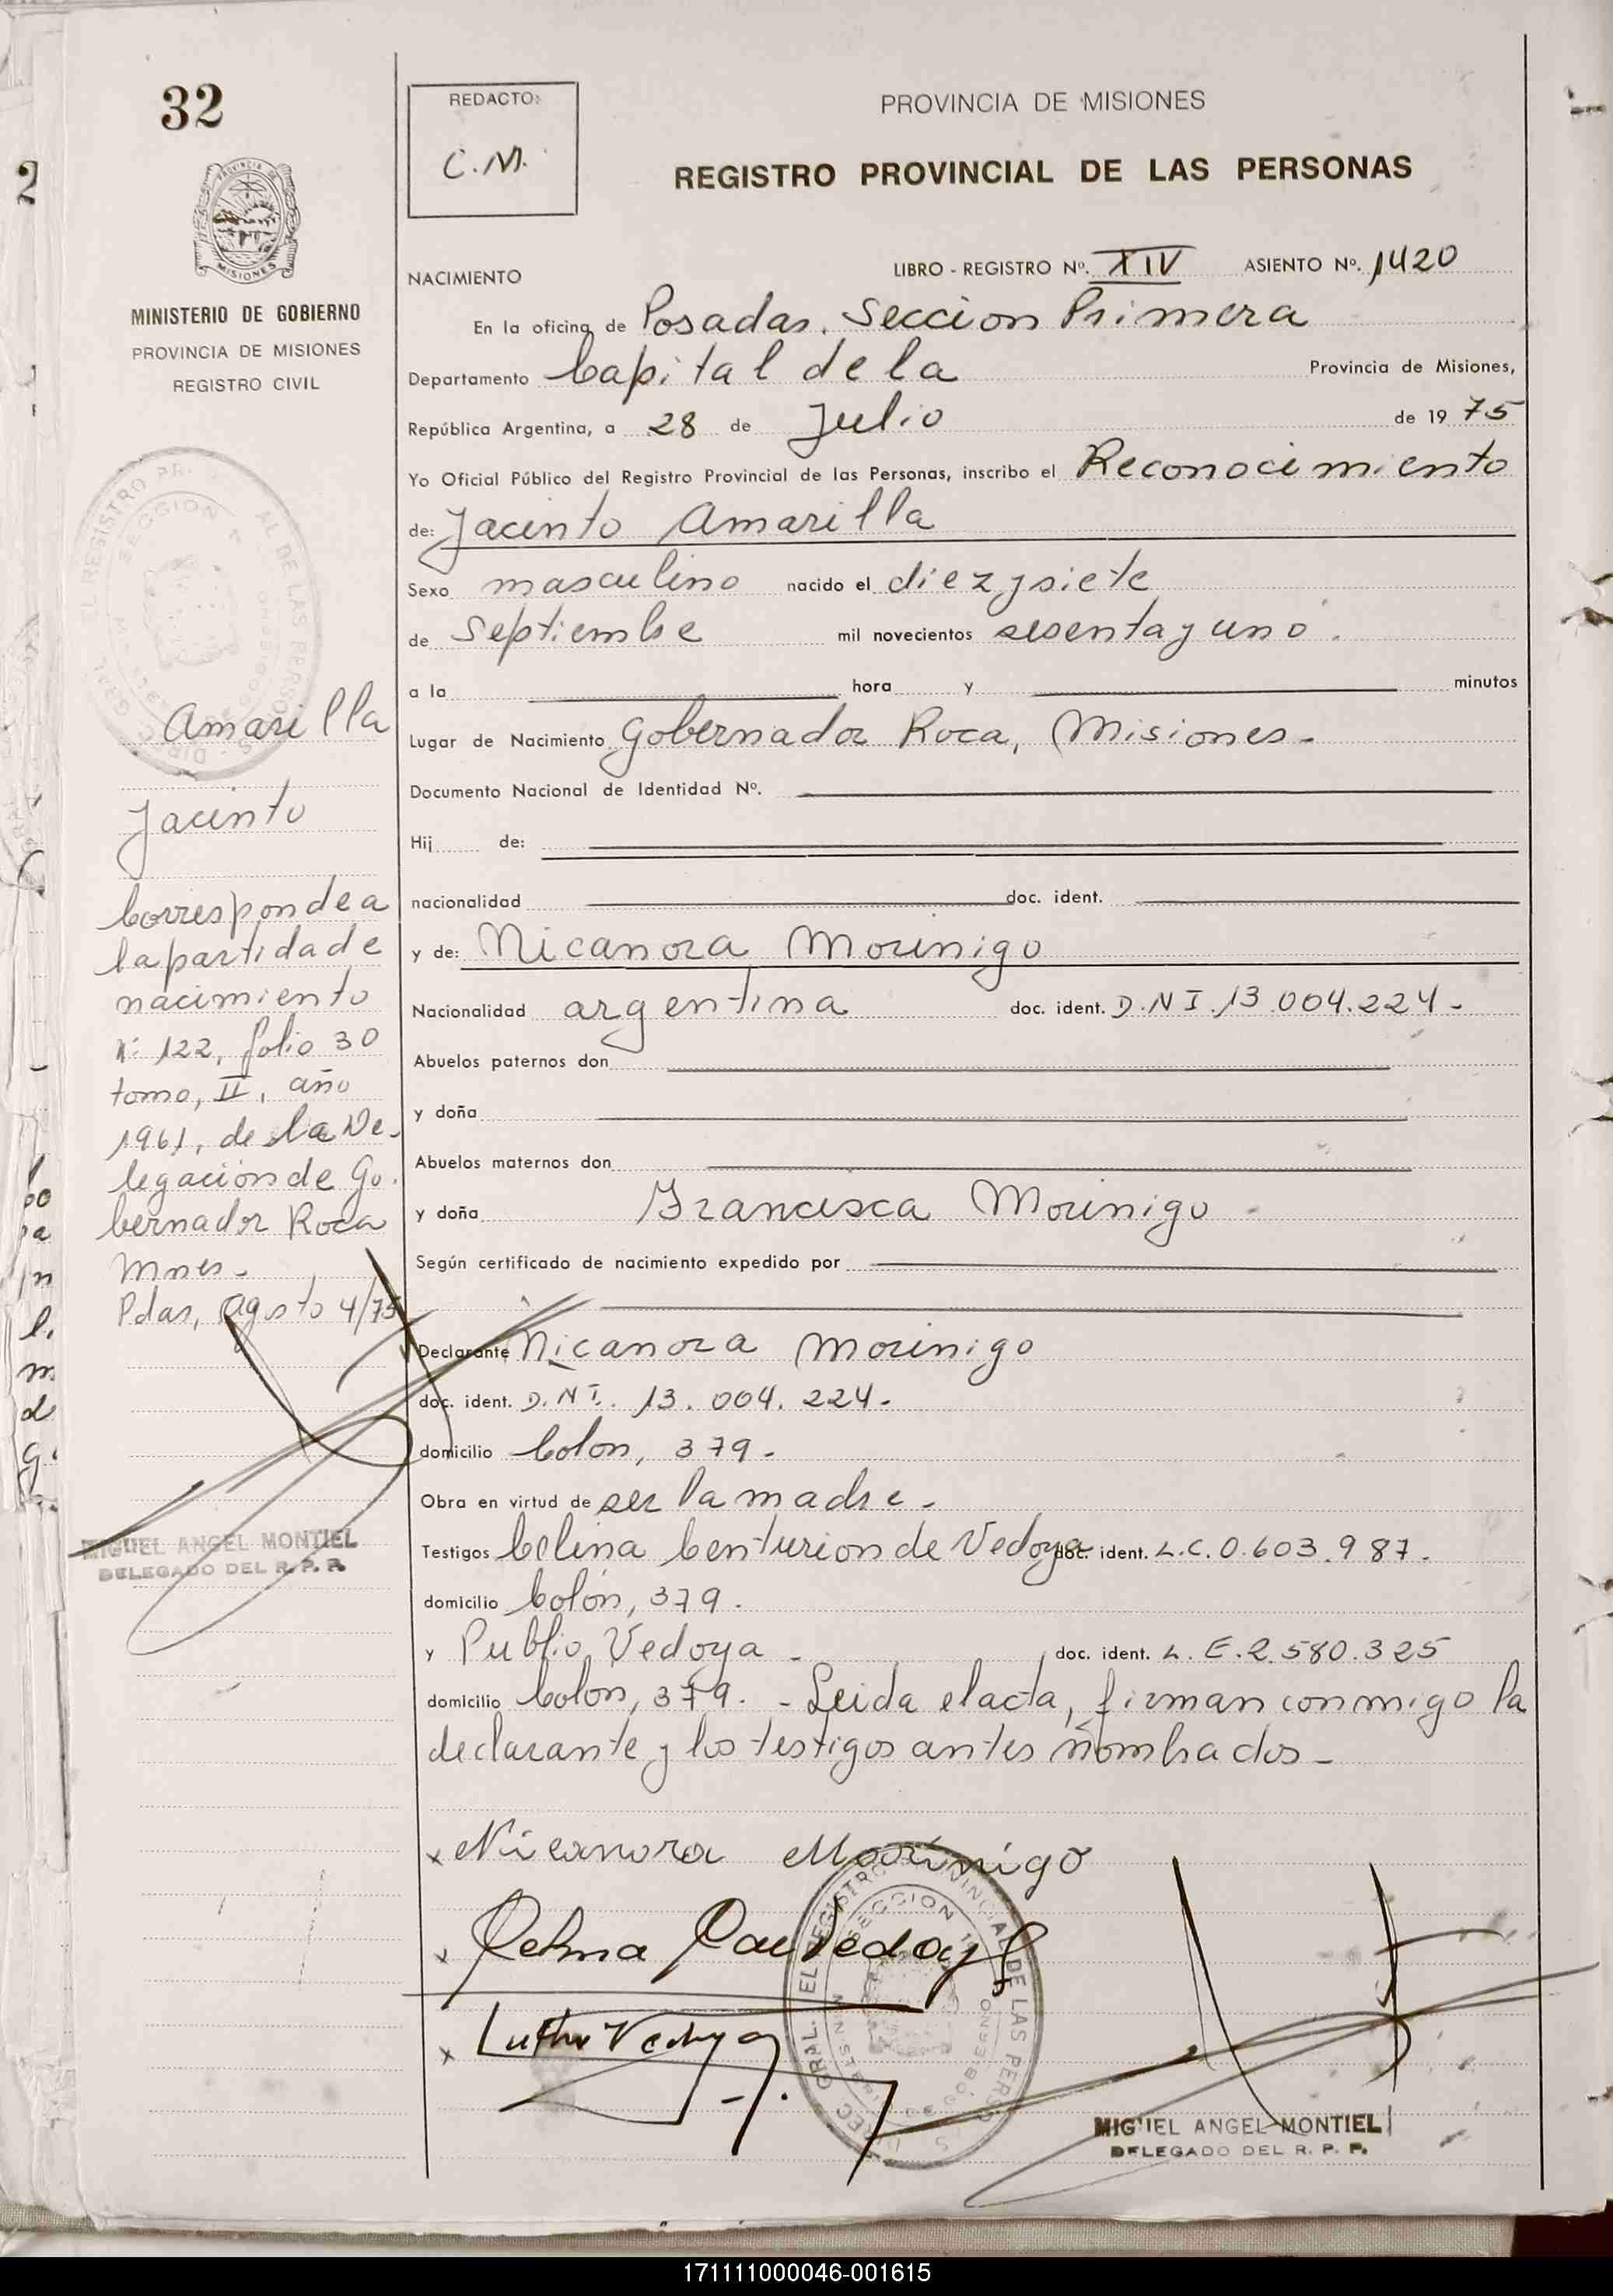 32
REDACTO:
C.M.
PROVINCIA DE MISIONES
REGISTRO PROVINCIAL DE LAS PERSONAS
MISIONES
MINISTERIO DE GOBIERNO
PROVINCIA DE MISIONES
REGISTRO CIVIL
NACIMIENTO
LIBRO - REGISTRO Nº. XIV ASIENTO Nº. 1420
En la oficina de Posadas. Seccion Primera
Departamento Capital de la Provincia de Misiones,
República Argentina, a 28 de Julio de 19 75
Yo Oficial Público del Registro Provincial de las Personas, inscribo el Reconocimiento
de: Jacinto Amarilla
Sexo masculino nacido el diez y siete
de Septiembre mil novecientos sesenta y uno.
a la hora y minutos
Lugar de Nacimiento Gobernador Roca, Misiones-
Documento Nacional de Identidad Nº.
Hij de:
nacionalidad doc. ident.
y de: Nicanora Morinigo
Nacionalidad argentina doc. ident. D.N I. 13.004.224-
Abuelos paternos don
y doña
Abuelos maternos don
y doña Francisca Morinigo -
Según certificado de nacimiento expedido por
Declarante Nicanora Morinigo
doc. ident. D.N I. 13.004.224-
domicilio Colon, 379-
Obra en virtud de ser la madre-
Testigos Celina Centurion de Vedoya doc. ident. L.C.0.603.987.
domicilio Colón, 379.
y Publio Vedoya - doc. ident. L.E.2.580.325
domicilio Colon, 379. - Leida el acta, firman conmigo la
declarante y los testigos antes nombrados-
x Nicanora Morinigo
x
x
MIGUEL ANGEL MONTIEL
DELEGADO DEL R. P. P.
Amarilla
Jacinto
Corresponde a
la partida de
nacimiento
Nº 122, folio 30
tomo, II, año
1961, de la De-
legación de Go-
bernador Roca
Mnes-
Pdas, Agosto 4/75
MIGUEL ANGEL MONTIEL
DELEGADO DEL R. P. P.
171111000046-001615